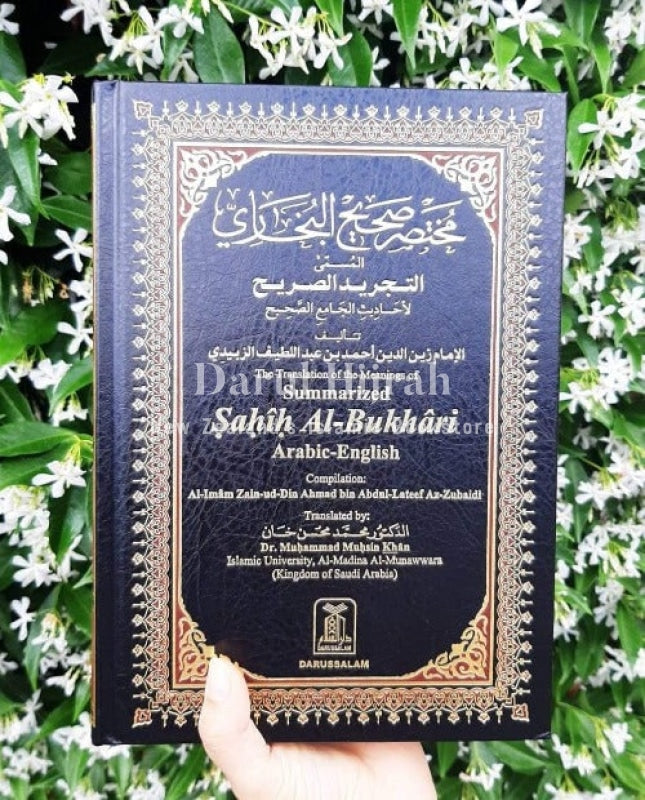 مُختصر صحيح البُخاري
المُسمّى
التجريد الصريح
لأحاديث الجامع الصحيح
تأليف
الإمام زين الدين أحمد بن عبد اللطيف الزبيدي
The Translation of the Meanings of
Summarized
Ṣaḥîḥ Al-Bukhâri
Arabic-English
Compilation:
Al-Imâm Zain-ud-Din Ahmad bin Abdul-Lateef Az-Zubaidi
Translated by:
الدكتور محمد محسن خان
Dr. Muḥammad Muḥsin Khân
Islamic University, Al-Madina Al-Munawwara
(Kingdom of Saudi Arabia)
دار السلام
DARUSSALAM
DARUSSALAM